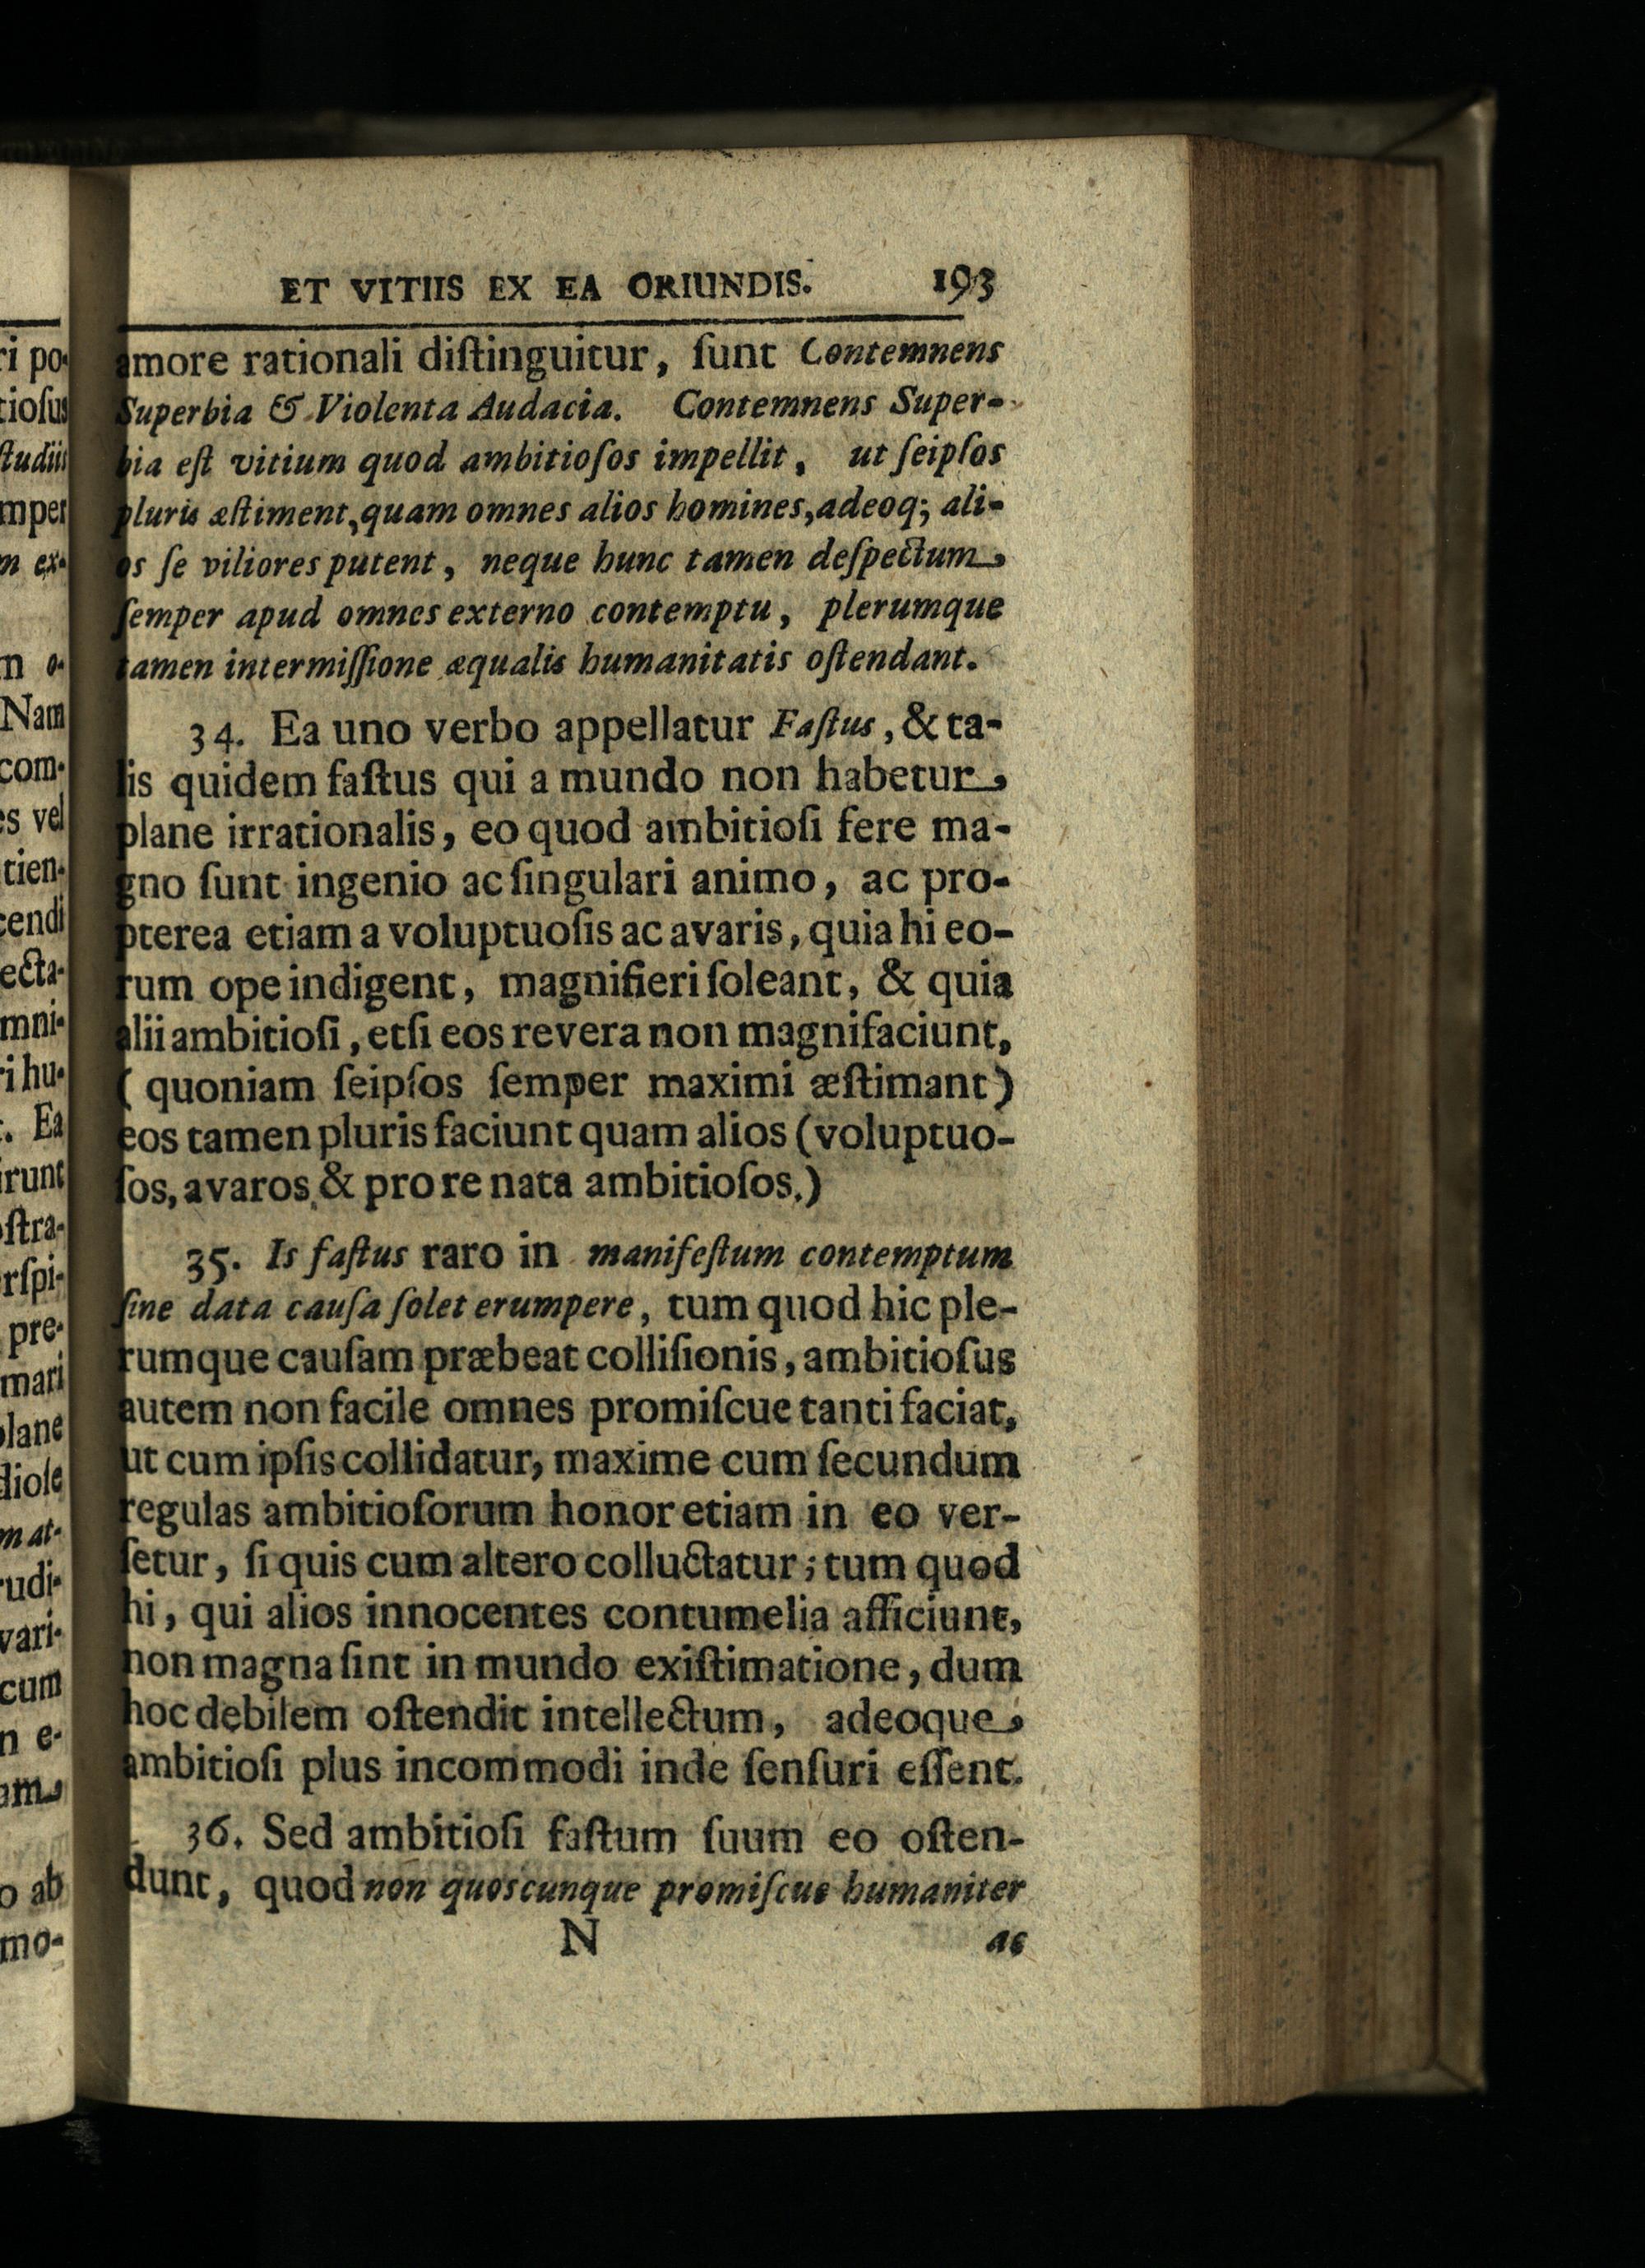 ET VITIIS EX EA ORIUNDIS. 193
amore rationali diſtinguitur, ſunt Contemnens
Superbia & Violenta Audacia. Contemnens Super-
bia eſt vitium quod ambitioſos impellit, ut ſeipſos
pluris æſtiment, quam omnes alios homines, adeoq; ali-
os ſe viliores putent, neque hunc tamen deſpectum
ſemper apud omnes externo contemptu, plerumque
tamen intermiſſione æqualis humanitatis oſtendant.
34. Ea uno verbo appellatur Faſtus, & ta-
lis quidem faſtus qui a mundo non habetur
plane irrationalis, eo quod ambitioſi fere ma-
gno ſunt ingenio ac ſingulari animo, ac pro-
pterea etiam a voluptuoſis ac avaris, quia hi eo-
rum ope indigent, magnifieri ſoleant, & quia
alii ambitioſi, etſi eos revera non magnifaciunt,
( quoniam ſeipſos ſemper maximi æſtimant)
eos tamen pluris faciunt quam alios (voluptuo-
ſos, avaros & pro re nata ambitioſos.)
35. Is faſtus raro in manifeſtum contemptum
ſine data cauſa ſolet erumpere, tum quod hic ple-
rumque cauſam præbeat colliſionis, ambitioſus
autem non facile omnes promiſcue tanti faciat,
ut cum ipſis collidatur, maxime cum ſecundum
regulas ambitioſorum honor etiam in eo ver-
ſetur, ſi quis cum altero colluctatur; tum quod
hi, qui alios innocentes contumelia afficiunt,
non magna ſint in mundo exiſtimatione, dum
hoc debilem oſtendit intellectum, adeoque
ambitioſi plus incommodi inde ſenſuri eſſent.
36. Sed ambitioſi faſtum ſuum eo oſten-
dunt, quod non quoscunque promiſcue humaniter
N ac